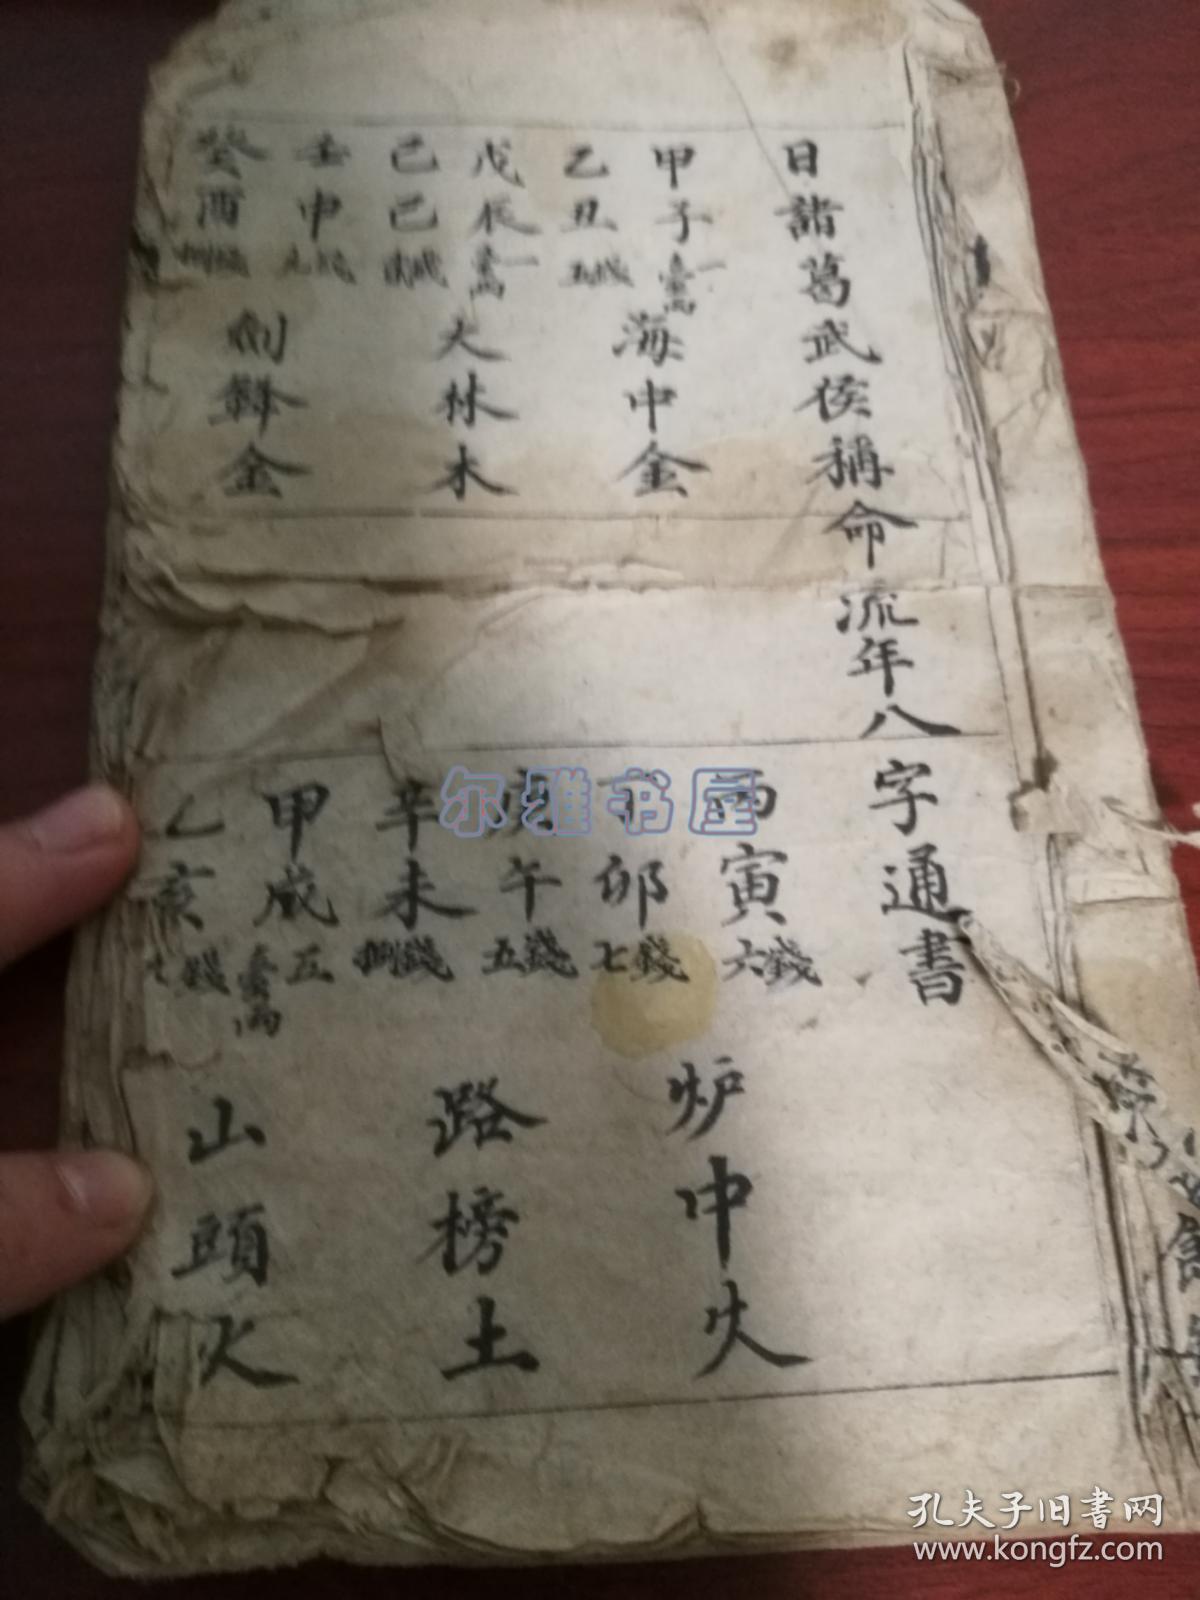 日諸葛武侯稱命流年八字通書
甲子 壹兩一
乙丑 五錢
海中金
丙寅 六錢
丁卯 七錢
炉中火
戊辰 壹兩一
己巳
大林木
庚午 五錢
辛未 捌錢
路榜土
壬申 七錢
癸酉 捌錢
劍鋒金
甲戌 壹兩五
乙亥 七錢
山頭火
尔雅书屋
孔夫子旧书网
www.kongfz.com